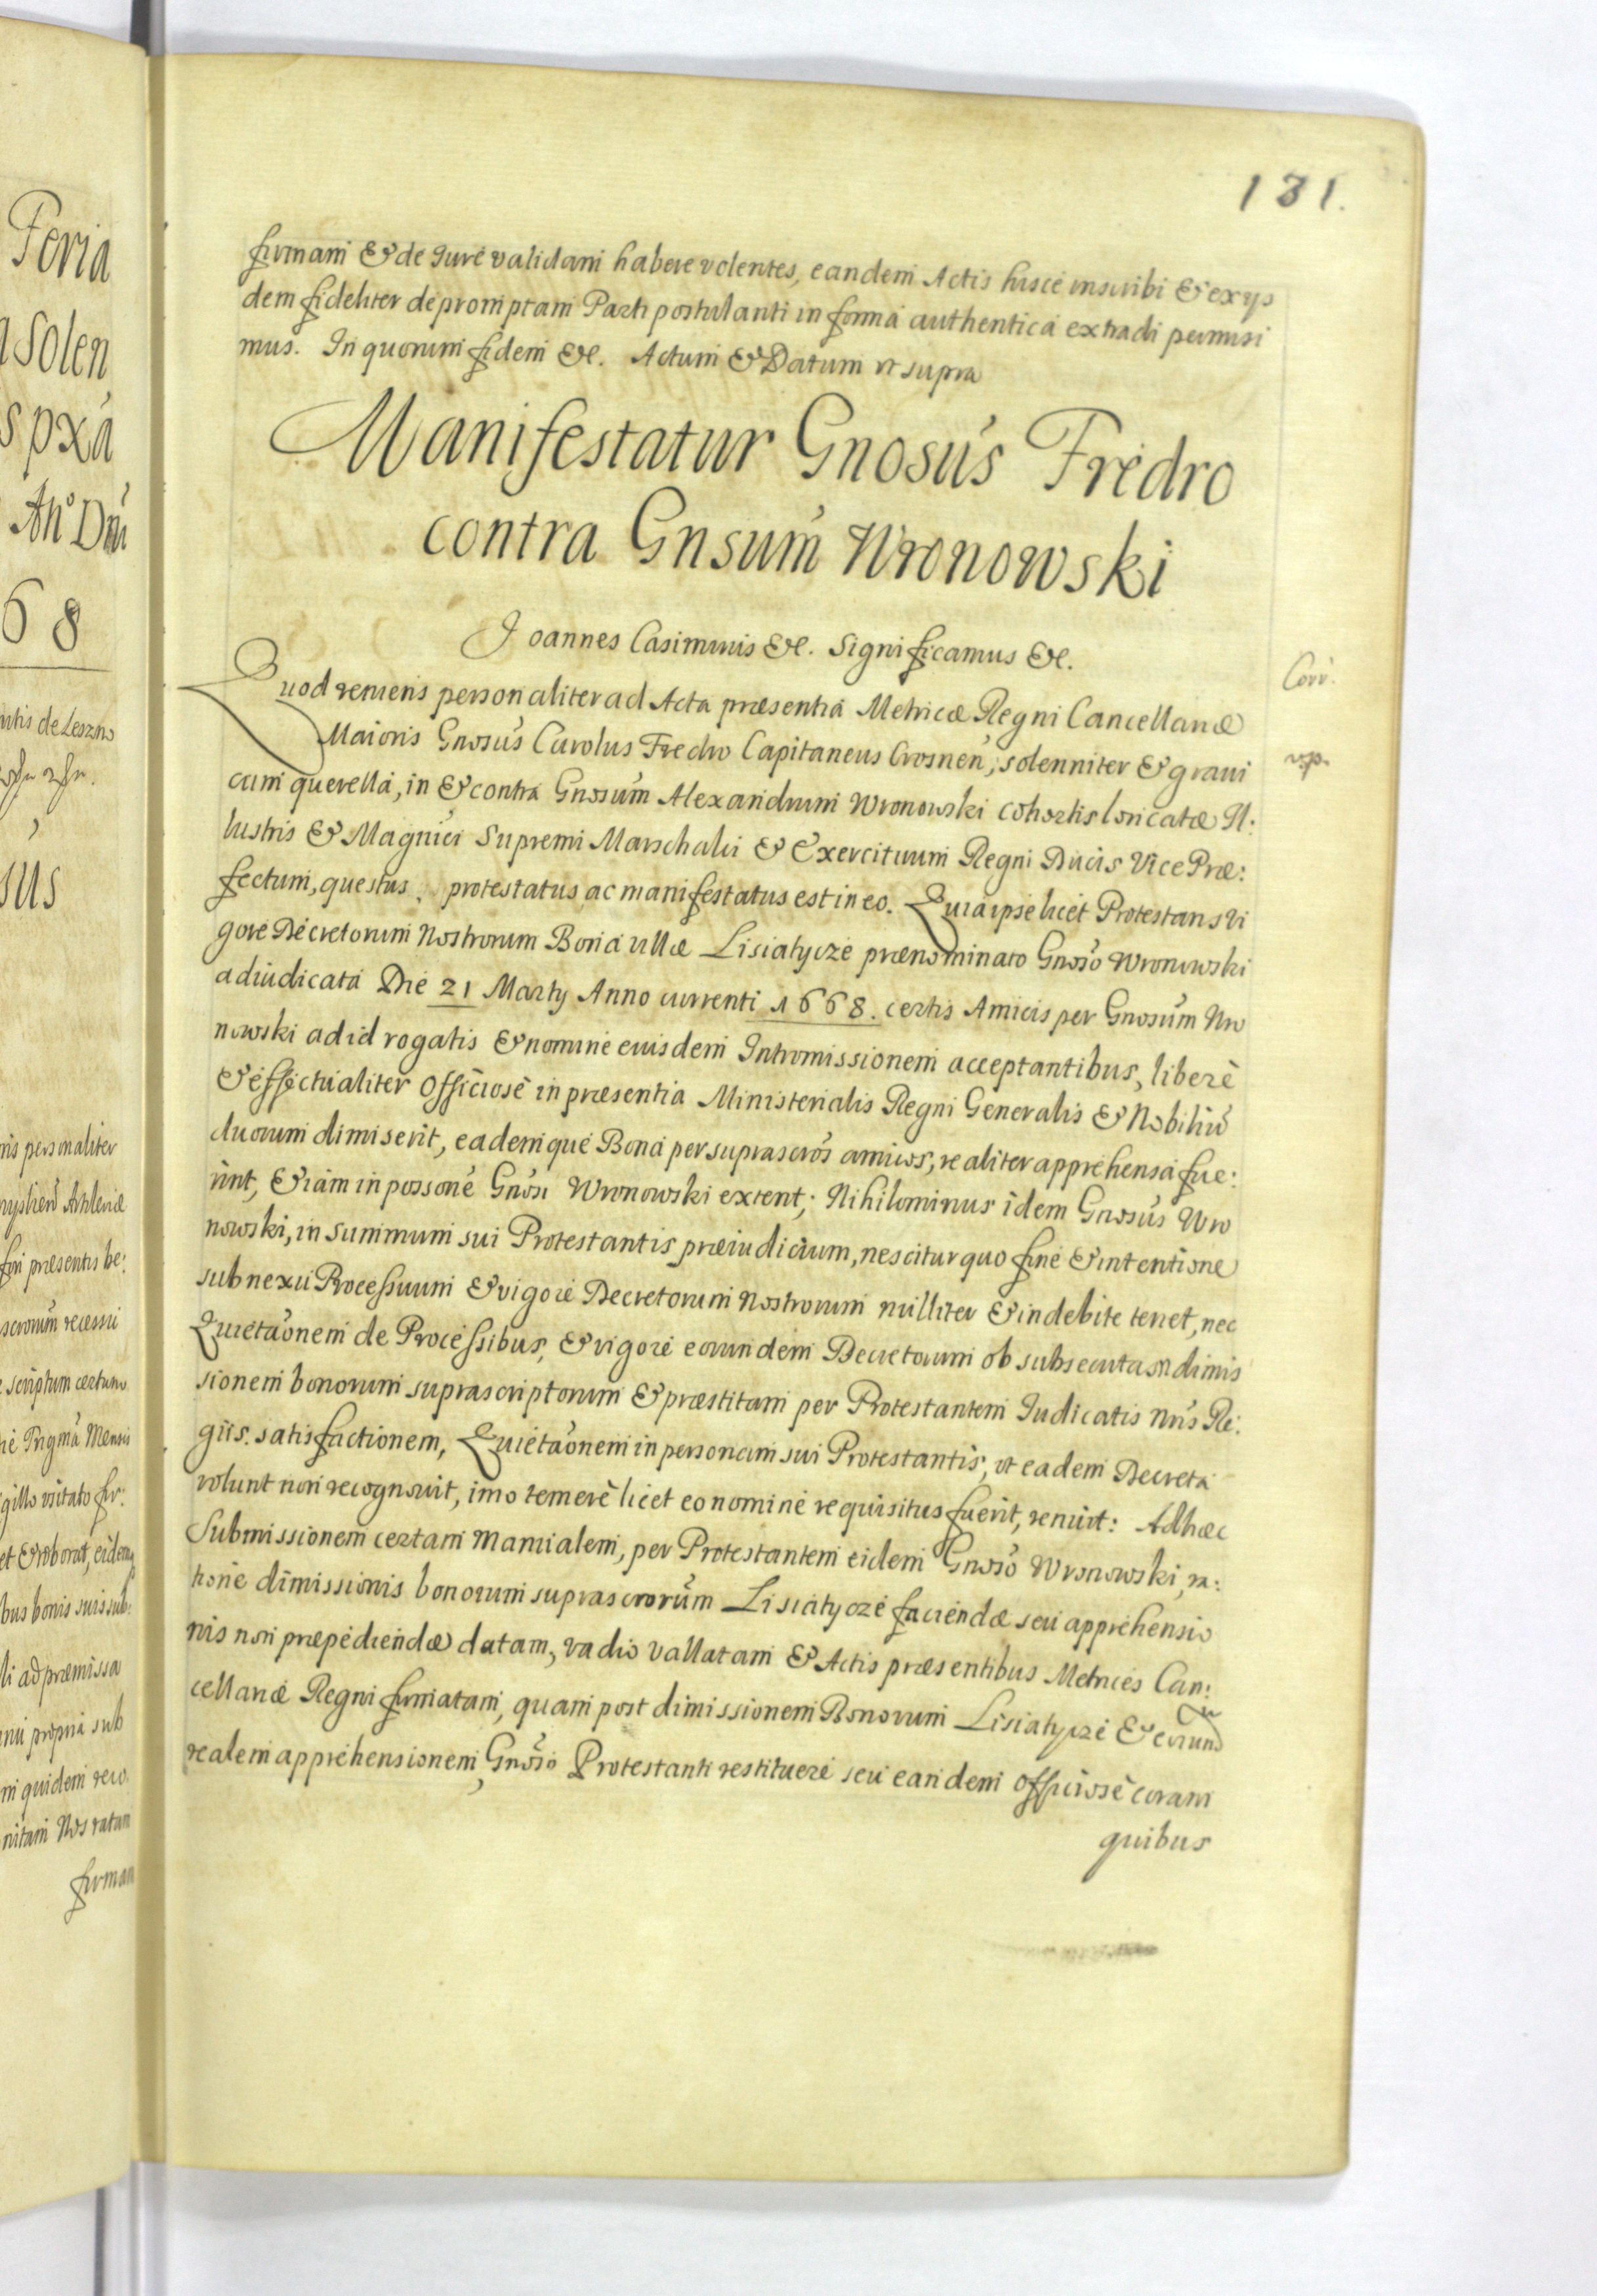 131.
firmam & de Jure validam habere volentes, eandem Actis hisce inscribi & exijs
dem fideliter depromptam Parti postulanti in forma authentica extradi permisi
mus. In quorum fidem &c. Actum & Datum vt supra
Manifestatur Gnosus Fredro
contra Gnsum Wronowski
Joannes Casimirus &c. Significamus &c.
Quod veniens personaliter ad Acta præsentia Metricæ Regni Cancellariæ
Maioris Gnosus Carolus Fredro Capitaneus Crosnen, solenniter & graui
cum querella, in & contra Gnosum Alexandrum Wronowski cohortis loricatæ Il:
lustris & Magnici Supremi Marschalci & Exercituum Regni Ducis Vice Præ:
fectum, questus, protestatus ac manifestatus est in eo. Quia ipse licet Protestans Vi
gore Decretorum Nostrorum Bona villæ Lisiatycze prænominato Gnoso Wronowski
adiudicata Die 21 Martij Anno currenti 1668. certis Amicis per Gnosum Wro
nowski ad id rogatis & nomine eiusdem Intromissionem acceptantibus, liberè
& effectualiter Officiosè in præsentia Ministerialis Regni Generalis & Nobiliũ
duorum dimiserit, eademque Bona per suprascros amicos, realiter apprehensa fue:
rint, & iam in possone Gnosi Wronowski extent; Nihilominus idem Gnosus Wro
nowski, in summum sui Protestantis præiudicium, nescitur quo fine & intentione
sub nexu Processuum & vigore Decretorum Nostrorum nulliter & indebite tenet, nec
Quietaonem de Processibus, & vigore eorundem Decretorum ob subsecutam dimis
sionem bonorum suprascriptorum & præstitam per Protestantem Iudicatis Nris Re:
gijs. satisfactionem, Quietaonem in personam sui Protestantis, vt eadem Decreta
volunt non recognouit, imo temerè licet eo nomine requisitus fuerit, renuit: Adhæc
Submissionem certam Manualem, per Protestantem eidem Gnoso Wronowski, ra:
tione dimissionis bonorum suprascrorum Lisiatycze faciendæ seu apprehensio
nis non præpediendæ datam, vadio vallatam & Actis præsentibus Metrices Can:
cellariæ Regni firmatam, quam post dimissionem Bonorum Lisiatycze & eorund
realem apprehensionem, Gnoso Protestanti restituere seu eandem Officiosè coram
quibus
Corr.
Feria
Solen
s pxa
An° Dni
68
sus
firmam